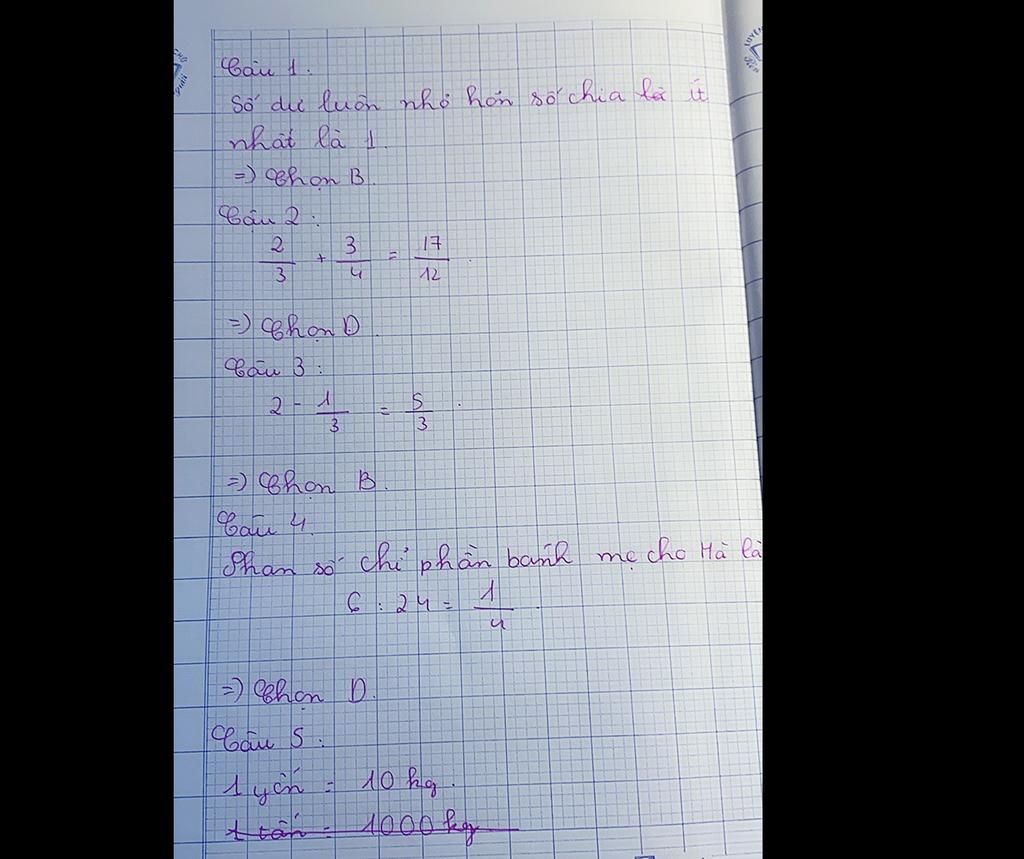 Câu 1.
Số dư luôn nhỏ hơn số chia là ít
nhất là 1.
=) Chọn B.
Câu 2:
2/3 + 3/4 = 17/12.
=) Chọn D.
Câu 3:
2 - 1/3 = 5/3.
=) Chọn B.
Câu 4.
Phan số chỉ phần bánh mẹ cho Hà là
6 : 24 = 1/4.
=) Chọn D.
Câu 5:
1 yến = 10 kg.
1 tấn = 1000 kg